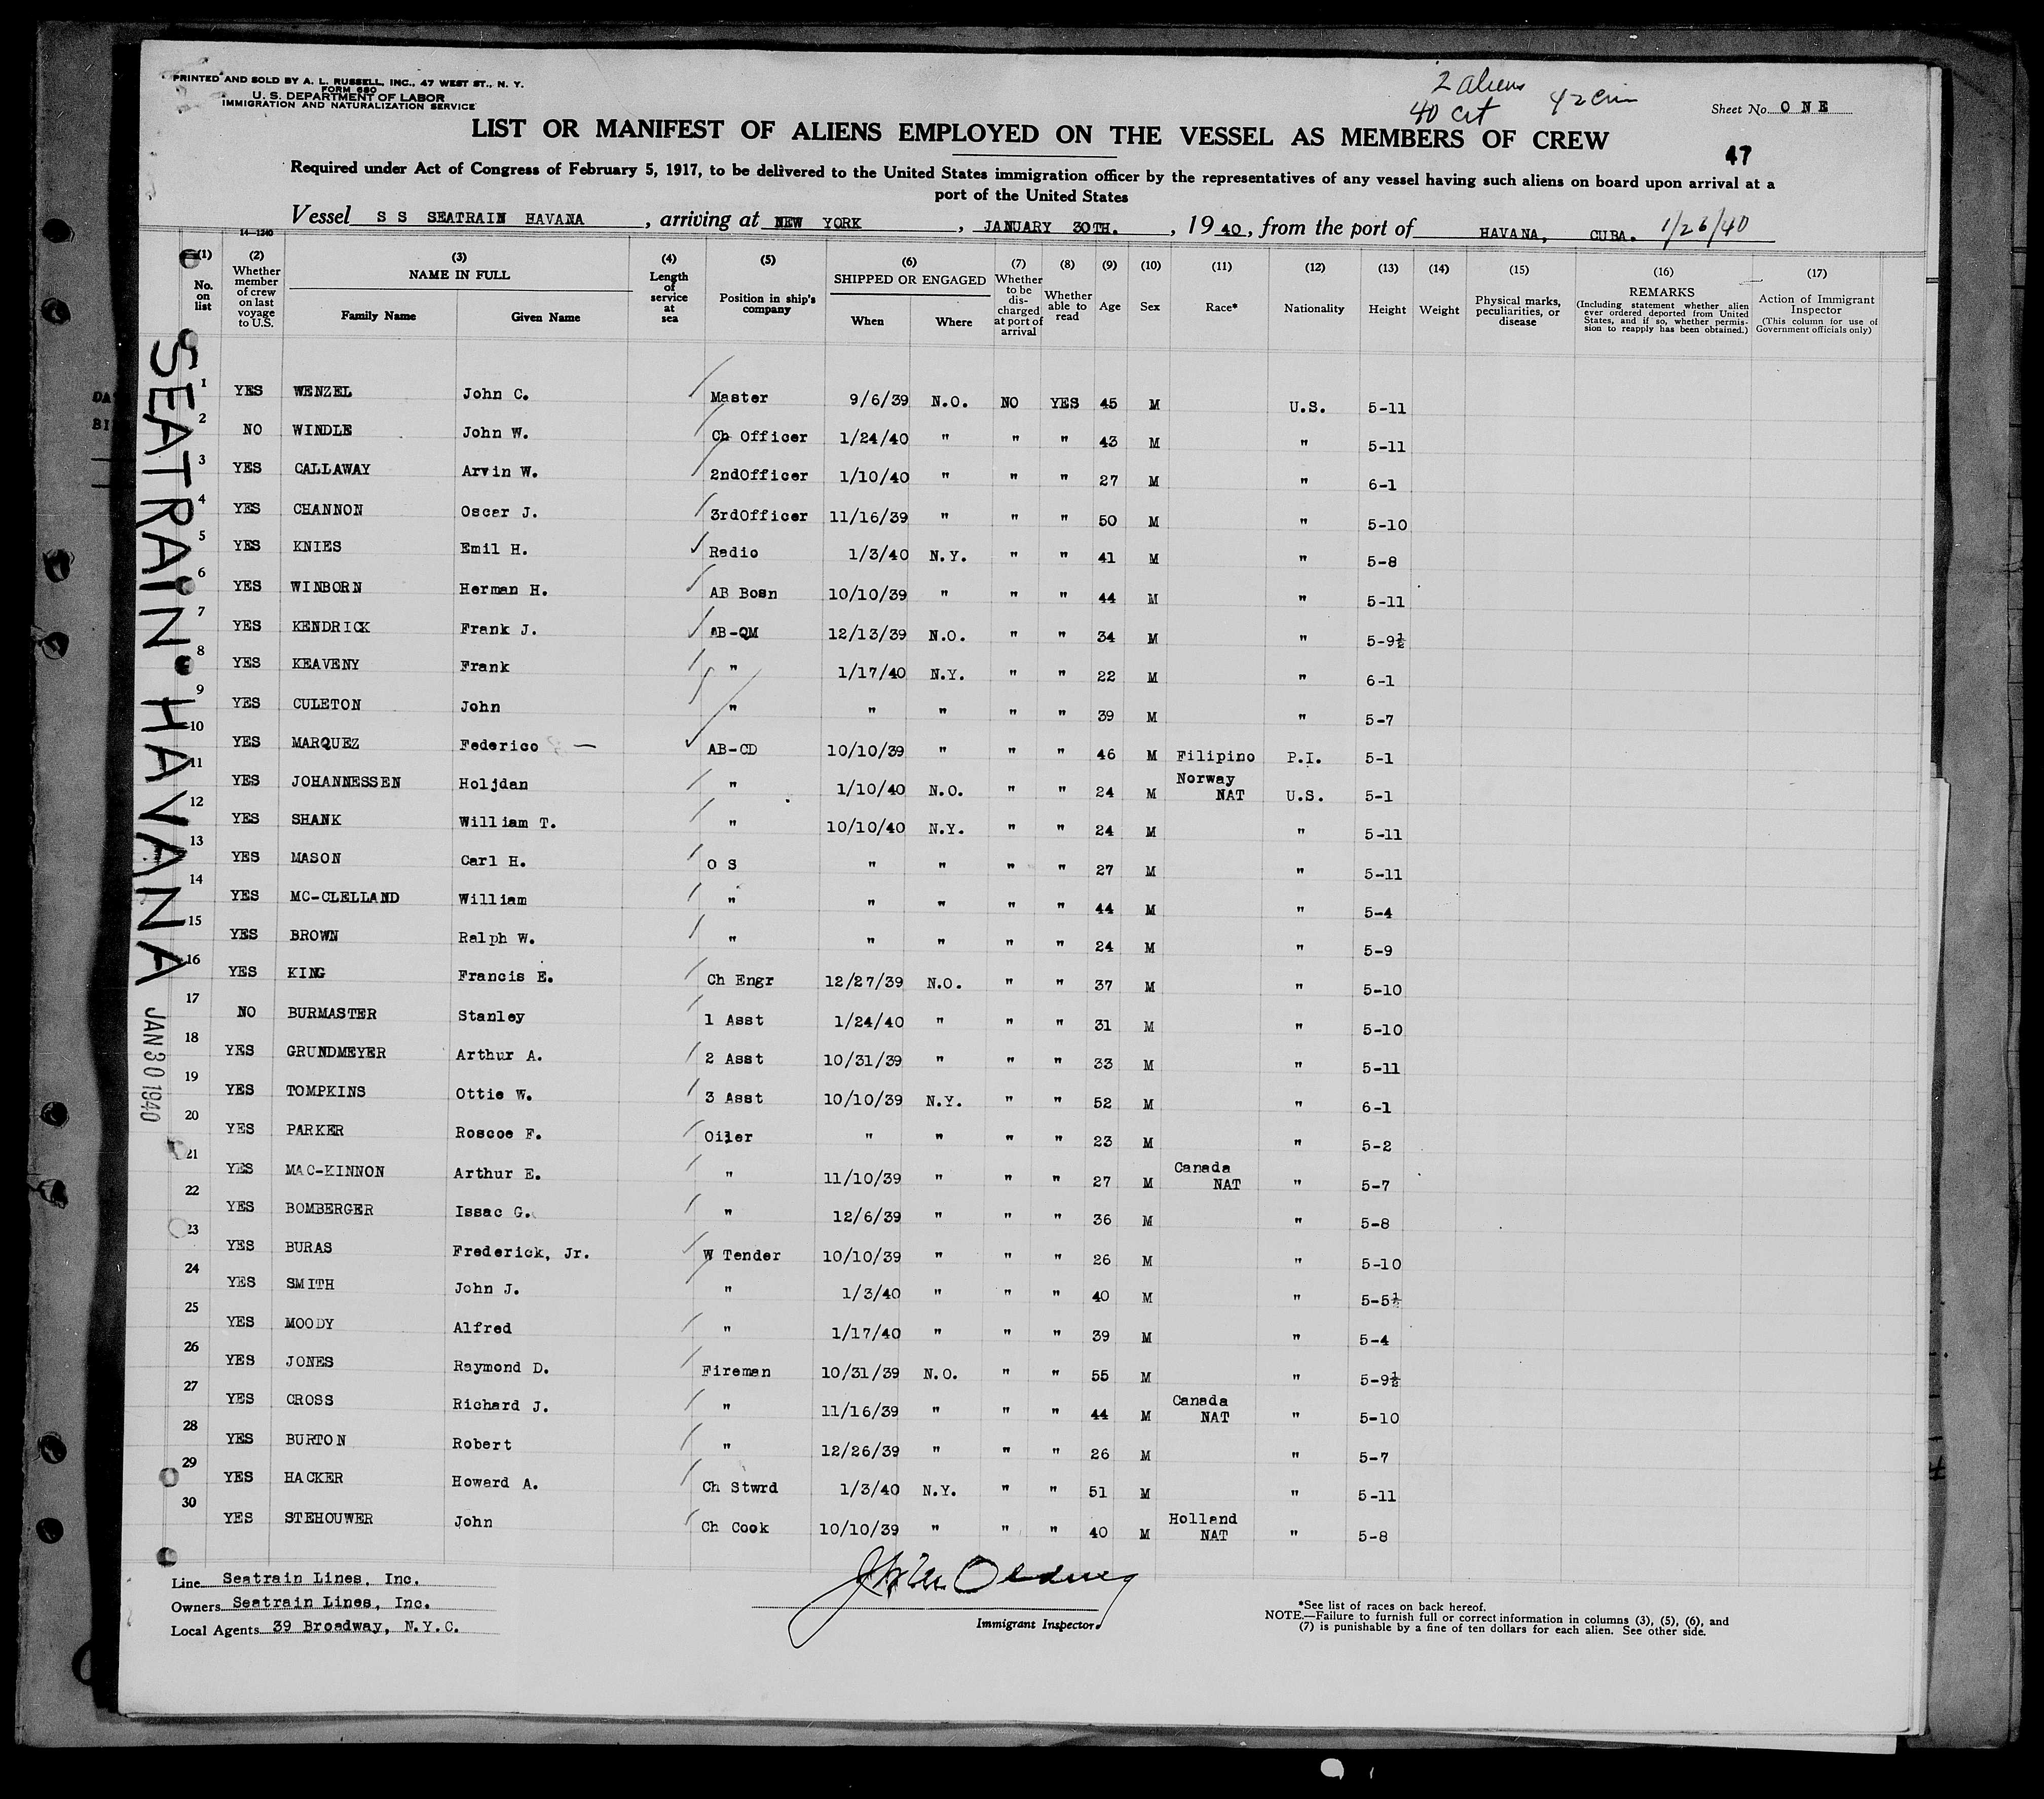 PRINTED AND SOLD BY A. L. RUSSELL, INC., 47 WEST ST., N. Y.
FORM 680
U. S. DEPARTMENT OF LABOR
IMMIGRATION AND NATURALIZATION SERVICE
2 aliens
40 cit 42
Sheet No. ONE
LIST OR MANIFEST OF ALIENS EMPLOYED ON THE VESSEL AS MEMBERS OF CREW
47
Required under Act of Congress of February 5, 1917, to be delivered to the United States immigration officer by the representatives of any vessel having such aliens on board upon arrival at a
port of the United States
Vessel S S SEATRAIN HAVANA, arriving at NEW YORK, JANUARY 30TH., 1940, from the port of HAVANA, CUBA. 1/26/40
14-1240
(1) No. on list (2) Whether member of crew on last voyage to U.S. (3) NAME IN FULL Family Name Given Name (4) Length of service at sea (5) Position in ship's company (6) SHIPPED OR ENGAGED When Where (7) Whether to be discharged at port of arrival (8) Whether able to read (9) Age (10) Sex (11) Race* (12) Nationality (13) Height (14) Weight (15) Physical marks, peculiarities, or disease (16) REMARKS (Including statement whether alien ever ordered deported from United States, and if so, whether permission to reapply has been obtained.) (17) Action of Immigrant Inspector (This column for use of Government officials only)
1 YES WENZEL John C. Master 9/6/39 N.O. NO YES 45 M U.S. 5-11
2 NO WINDLE John W. Ch Officer 1/24/40 " " " 43 M " 5-11
3 YES CALLAWAY Arvin W. 2ndOfficer 1/10/40 " " " 27 M " 6-1
4 YES CHANNON Oscar J. 3rdOfficer 11/16/39 " " " 50 M " 5-10
5 YES KNIES Emil H. Radio 1/3/40 N.Y. " " 41 M " 5-8
6 YES WINBORN Herman H. AB Bosn 10/10/39 " " " 44 M " 5-11
7 YES KENDRICK Frank J. AB-QM 12/13/39 N.O. " " 34 M " 5-9½
8 YES KEAVENY Frank " 1/17/40 N.Y. " " 22 M " 6-1
9 YES CULETON John " " " " " 39 M " 5-7
10 YES MARQUEZ Federico — AB-CD 10/10/39 " " " 46 M Filipino P.I. 5-1
11 YES JOHANNESSEN Holjdan " 1/10/40 N.O. " " 24 M Norway NAT U.S. 5-1
12 YES SHANK William T. " 10/10/40 N.Y. " " 24 M " 5-11
13 YES MASON Carl H. O S " " " " 27 M " 5-11
14 YES MC-CLELLAND William " " " " " 44 M " 5-4
15 YES BROWN Ralph W. " " " " " 24 M " 5-9
16 YES KING Francis E. Ch Engr 12/27/39 N.O. " " 37 M " 5-10
17 NO BURMASTER Stanley 1 Asst 1/24/40 " " " 31 M " 5-10
18 YES GRUNDMEYER Arthur A. 2 Asst 10/31/39 " " " 33 M " 5-11
19 YES TOMPKINS Ottie W. 3 Asst 10/10/39 N.Y. " " 52 M " 6-1
20 YES PARKER Roscoe F. Oiler " " " " 23 M " 5-2
21 YES MAC-KINNON Arthur E. " 11/10/39 " " " 27 M Canada NAT " 5-7
22 YES BOMBERGER Issac G. " 12/6/39 " " " 36 M " 5-8
23 YES BURAS Frederick, Jr. W Tender 10/10/39 " " " 26 M " 5-10
24 YES SMITH John J. " 1/3/40 " " " 40 M " 5-5½
25 YES MOODY Alfred " 1/17/40 " " " 39 M " 5-4
26 YES JONES Raymond D. Fireman 10/31/39 N.O. " " 55 M " 5-9½
27 YES CROSS Richard J. " 11/16/39 " " " 44 M Canada NAT " 5-10
28 YES BURTON Robert " 12/26/39 " " " 26 M " 5-7
29 YES HACKER Howard A. Ch Stwrd 1/3/40 N.Y. " " 51 M " 5-11
30 YES STEHOUWER John Ch Cook 10/10/39 " " " 40 M Holland NAT " 5-8
SEATRAIN HAVANA
JAN 30 1940
Line Seatrain Lines, Inc.
Owners Seatrain Lines, Inc.
Local Agents 39 Broadway, N.Y.C.
Immigrant Inspector.
*See list of races on back hereof.
NOTE.—Failure to furnish full or correct information in columns (3), (5), (6), and
(7) is punishable by a fine of ten dollars for each alien. See other side.